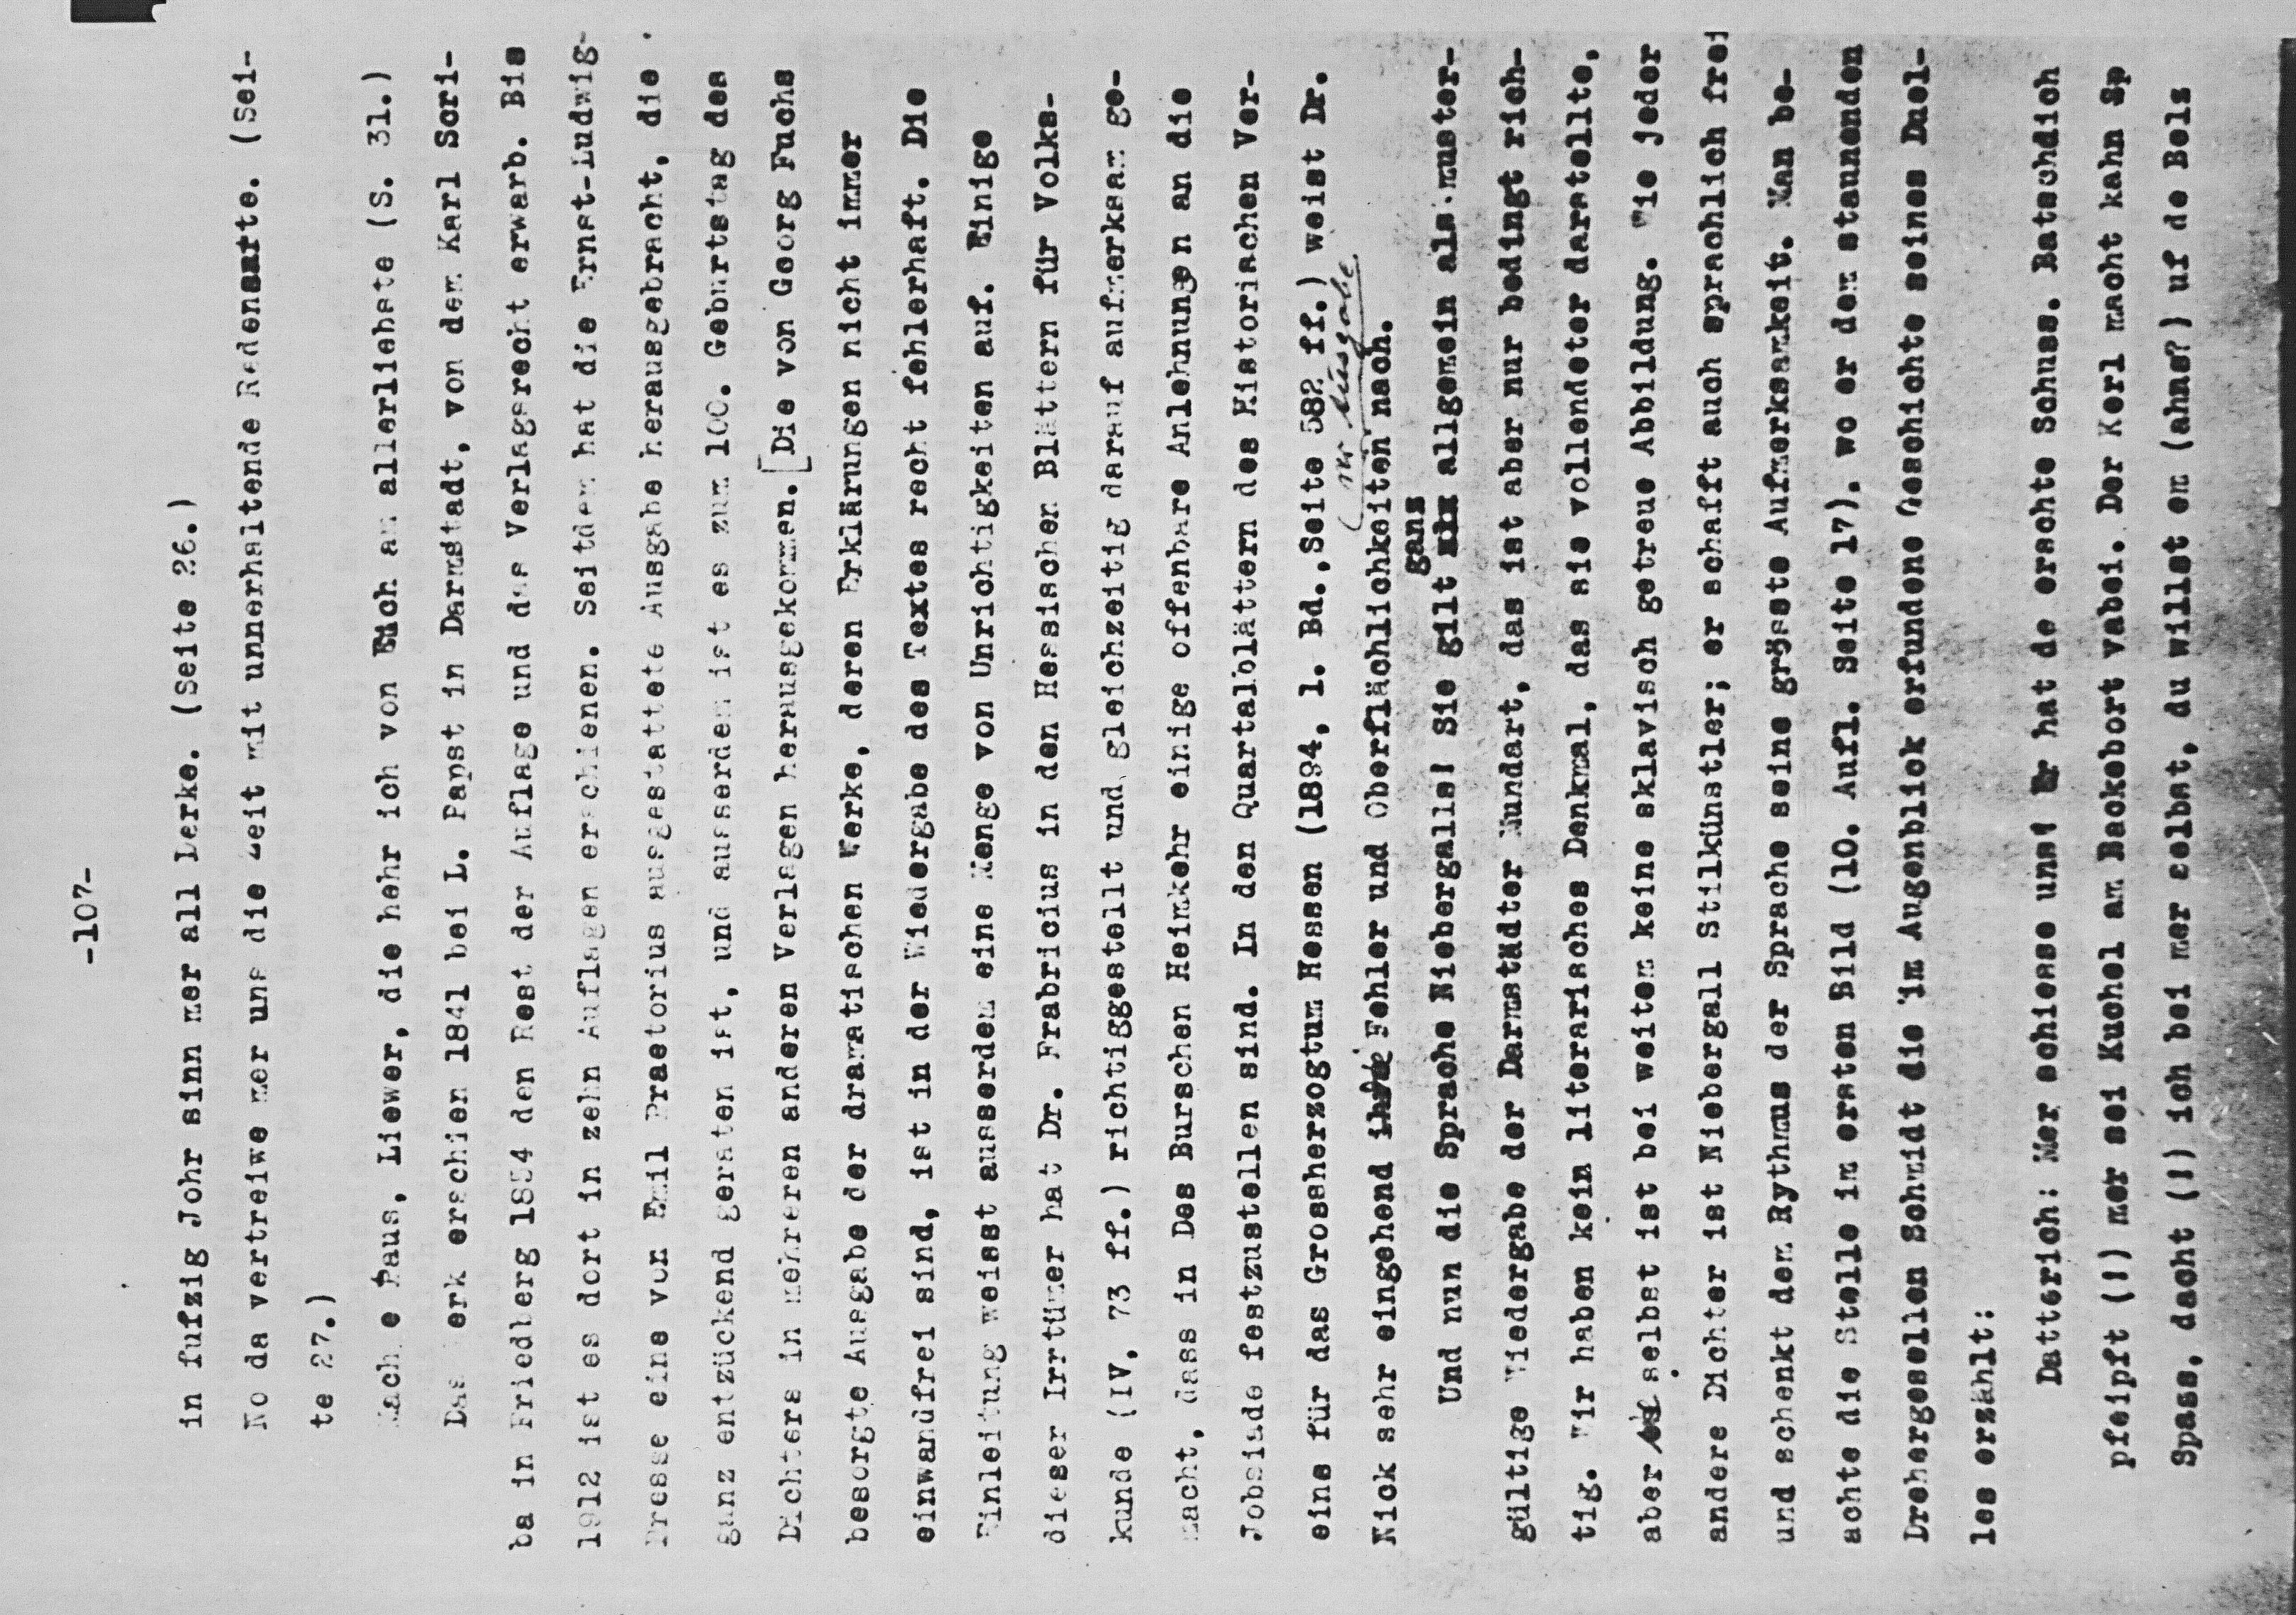 -107-
in fufzig Johr sinn mer all Derke. (Seite 26.)
No da vertreiwe mer uns die Zeit mit unnerhaltende Redensarte. (Sei-
te 27.)
Mach e Paus, Liewer, die hehr ich von Eich am allerliebste (S. 31.)
Das erk erschien 1841 bei L. Pabst in Darmstadt, von dem Karl Scri-
ba in Friedberg 1854 den Rest der Auflage und das Verlagsrecht erwarb. Bis
1912 ist es dort in zehn Auflagen erschienen. Seitdem hat die Ernst-Ludwig-
Presse eine von Emil Praetorius ausgestattete Ausgabe herausgebracht, die
ganz entzückend geraten ist, und ausserdem ist es zum 100. Geburtstag des
Dichters in mehreren anderen Verlagen herausgekommen. [Die von Georg Fuchs
besorgte Ausgabe der dramatischen Werke, deren Erklärungen nicht immer
einwandfrei sind, ist in der Wiedergabe des Textes recht fehlerhaft. Die
Einleitung weisst ausserdem eine Menge von Unrichtigkeiten auf. Einige
dieser Irrtümer hat Dr. Frabricius in den Hessischen Blättern für Volks-
kunde (IV, 73 ff.) richtiggestellt und gleichzeitig darauf aufmerksam ge-
macht, dass in Des Burschen Heimkehr einige offenbare Anlehnungen an die
Jobsiade festzustellen sind. In den Quartalblättern des Historischen Ver-
eins für das Grossherzogtum Hessen (1894, 1. Bd.,Seite 582 ff.) weist Dr.
Nick sehr eingehend ihre Fehler und Oberflächlichkeiten nach.
Ausgabe
ganz
Und nun die Sprache Niebergalls! Sie gilt allgemein als muster-
gültige Wiedergabe der Darmstädter Mundart, das ist aber nur bedingt rich-
tig. Wir haben kein literarisches Denkmal, das sie vollendeter darstellte,
aber selbst ist bei weitem keine sklavisch getreue Abbildung. Wie jeder
andere Dichter ist Niebergall Stilkünstler; er schafft auch sprachlich frei
und schenkt dem Rythmus der Sprache seine grösste Aufmerksamkeit. Man be-
achte die Stelle im ersten Bild (10. Aufl. Seite 17), wo er dem staunenden
Drehergesellen Schmidt die im Augenblick erfundene Geschichte seines Duel-
les erzählt:
Datterich: Mer schiesse uns! Er hat de erschte Schuss. Batschdich
pfeipft (!) mer sei Kuchel am Backebort vabei. Der Kerl macht kahn Sp
Spass, dacht (!) ich bei mer selbst, du willst em (ahns?) uf de Bels